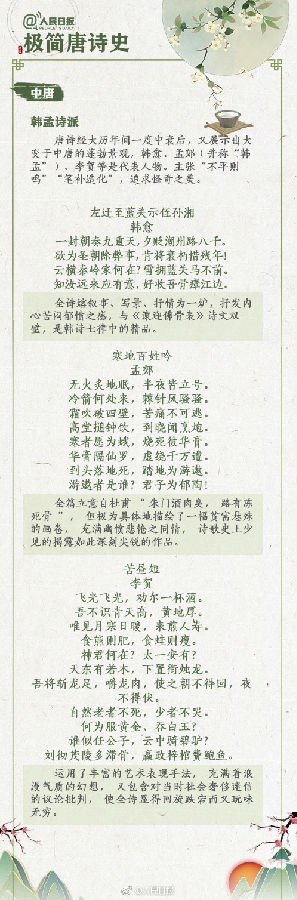 @人民日报
极简唐诗史
中唐
韩孟诗派
唐诗经大历年间一度中衰后，又展示由大
变于中唐的蓬勃景观，韩愈、孟郊（并称“韩
孟”）、李贺等是代表人物。主张“不平则
鸣”“笔补造化”，追求怪奇之美。
左迁至蓝关示侄孙湘
韩愈
一封朝奏九重天，夕贬潮州路八千。
欲为圣朝除弊事，肯将衰朽惜残年！
云横秦岭家何在？雪拥蓝关马不前。
知汝远来应有意，好收吾骨瘴江边。
全诗熔叙事、写景、抒情为一炉，抒发内
心苦闷郁愤之感，与《谏迎佛骨表》诗文双
璧，是韩诗七律中的精品。
寒地百姓吟
孟郊
无火炙地眠，半夜皆立号。
冷箭何处来，棘针风骚骚。
霜吹破四壁，苦痛不可逃。
高堂搥钟饮，到晓闻烹炮。
寒者愿为蛾，烧死彼华膏。
华膏隔仙罗，虚绕千万遭。
到头落地死，踏地为游遨。
游遨者是谁？君子为郁陶！
全篇立意自杜甫“朱门酒肉臭，路有冻
死骨”，但极为具体地描绘了一幅贫富悬殊
的画卷，充满幽愤悲惋之同情，诗歌史上少
见的揭露如此深刻尖锐的作品。
苦昼短
李贺
飞光飞光，劝尔一杯酒。
吾不识青天高，黄地厚。
唯见月寒日暖，来煎人寿。
食熊则肥，食蛙则瘦。
神君何在？太一安有？
天东有若木，下置衔烛龙。
吾将斩龙足，嚼龙肉，使之朝不得回，夜
不得伏。
自然老者不死，少者不哭。
何为服黄金、吞白玉？
谁似任公子，云中骑碧驴？
刘彻茂陵多滞骨，嬴政梓棺费鲍鱼。
运用了丰富的艺术表现手法，充满着浪
漫气质的幻想，又包含对当时社会奢侈迷信
的议论批判，使全诗显得回旋跌宕而又玩味
无穷。
@人民日报